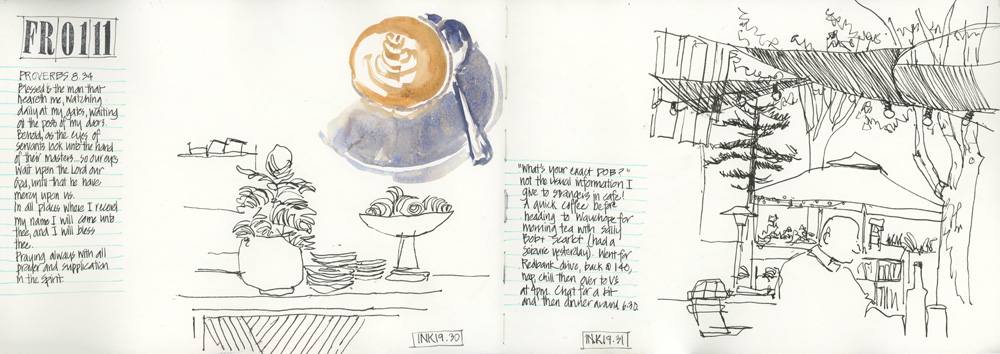 FR 0111
PROVERBS 8.34
Blessed is the man that
heareth me, watching
daily at my gates, waiting
at the posts of my doors.
Behold, as the eyes of
servants look unto the hand
of their masters... so our eyes
wait upon the Lord our
God, until that he have
mercy upon us.
In all places where I record
my name I will come unto
thee, and I will bless
thee.
Praying always with all
prayer and supplication
in the Spirit.
INK19.30
"What's your exact DOB?"
not the usual information I
give to strangers in cafe!
A quick coffee before
heading to Wauchope for
morning tea with Sally
Bob + Scarlet (had a
seizure yesterday). Went for
Redbank drive, back @ 140,
nap, chill then over to V's
at 4pm. Chat for a bit
and then dinner around 6.30.
INK19.31